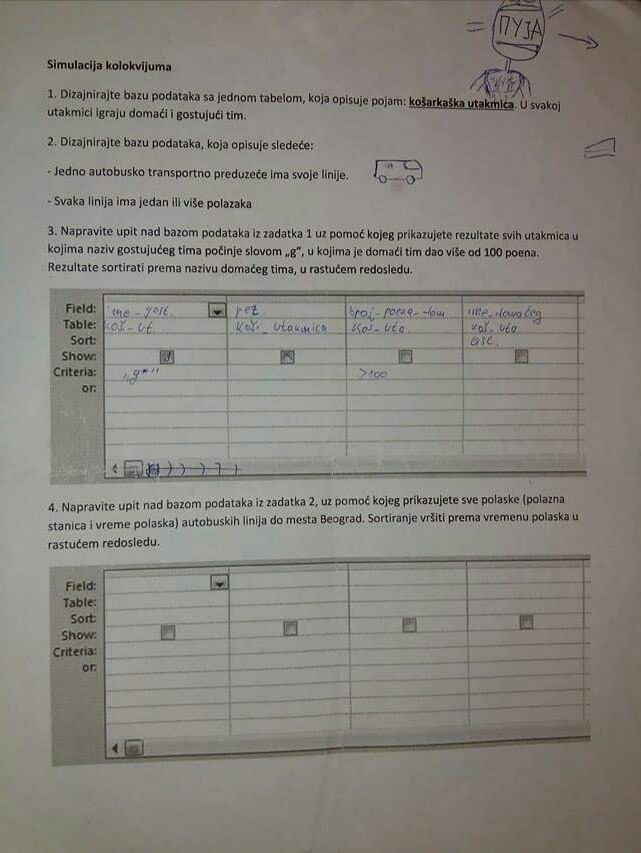 ПУЈА
Simulacija kolokvijuma
1. Dizajnirajte bazu podataka sa jednom tabelom, koja opisuje pojam: košarkaška utakmica. U svakoj
utakmici igraju domaći i gostujući tim.
2. Dizajnirajte bazu podataka, koja opisuje sledeće:
- Jedno autobusko transportno preduzeće ima svoje linije.
- Svaka linija ima jedan ili više polazaka
3. Napravite upit nad bazom podataka iz zadatka 1 uz pomoć kojeg prikazujete rezultate svih utakmica u
kojima naziv gostujućeg tima počinje slovom „g“, u kojima je domaći tim dao više od 100 poena.
Rezultate sortirati prema nazivu domaćeg tima, u rastućem redosledu.
Field: ime-gost. rez. broj-poena-dom ime-domaćeg
Table: koš-ut. Koš-utakmica koš-uta. koš-uta.
Sort: asc.
Show:
Criteria: „g*" >100
or:
4. Napravite upit nad bazom podataka iz zadatka 2, uz pomoć kojeg prikazujete sve polaske (polazna
stanica i vreme polaska) autobuskih linija do mesta Beograd. Sortiranje vršiti prema vremenu polaska u
rastućem redosledu.
Field:
Table:
Sort:
Show:
Criteria:
or: